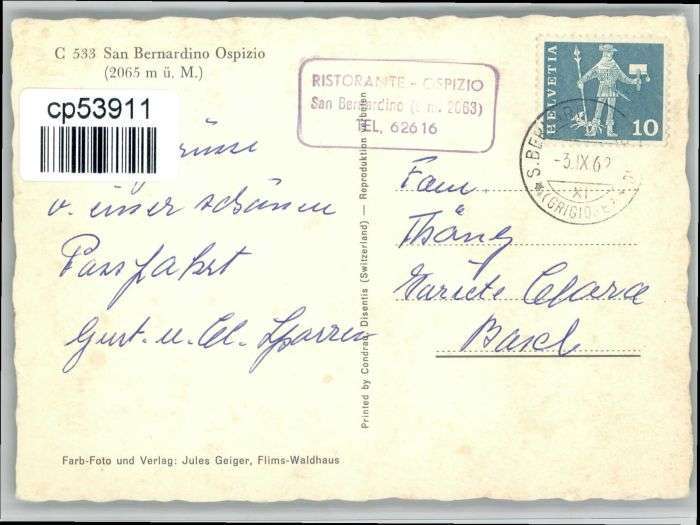 C 533 San Bernardino Ospizio
(2065 m ü. M.)
cp53911
RISTORANTE - OSPIZIO
San Bernardino (s. m. 2063)
TEL. 62616
HELVETIA
10
S. BERNARDINO
-3.IX.62
XI
(GRIGIONI)
v. einer schönen
Passfahrt
Gust. u. Cl.
Fam.
Basel
Printed by Condrau, Disentis (Switzerland) — Reproduktion verboten
Farb-Foto und Verlag: Jules Geiger, Flims-Waldhaus